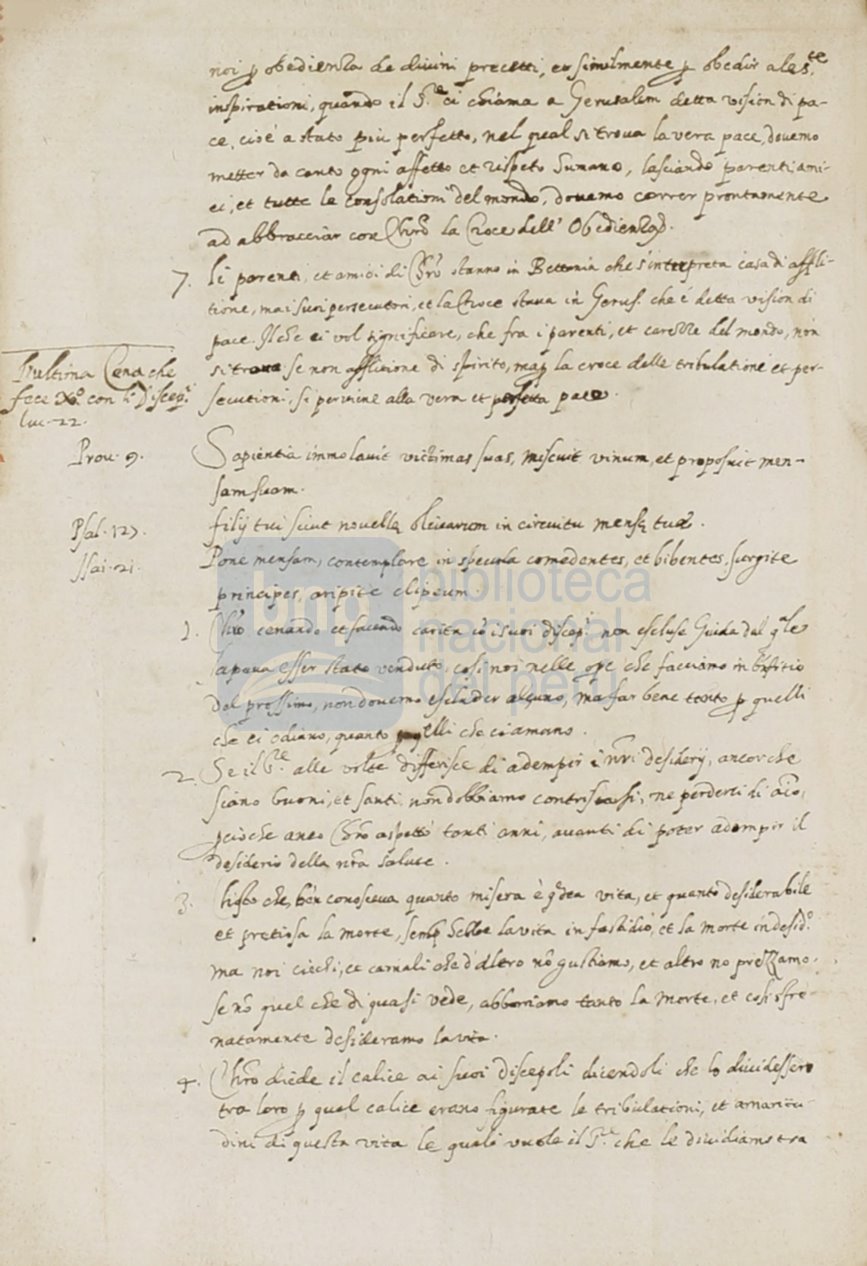 noi p obedienza de divini precetti, et similmente p obedir a le s.te
inspirationi, quando il S.re ci chiama a Gerusalem detta vision di pa-
ce, cioè a stato più perfetto, nel qual si trova la vera pace, dovemo
metter da canto ogni affetto et rispeto humano, lasciando parenti, ami-
ci, et tutte le consolationi del mondo, dovemo correr prontamente
ad abbracciar con Chro la Croce dell' Obedienza.
7. li parenti, et amici di Chro stanno in Bettania che s'interpreta casa di affli-
tione, ma i suoi persecutori, et la Croce stava in Gerus. che è detta vision di
pace. Il che ci vol significare, che fra i parenti, et carezze del mondo, non
si trova se non afflitione di spirito, ma p la croce delle tribulationi et per-
secutioni, si perviene alla vera et perfetta pace.
L'ultima Cena che
fece Xo. con li Discep.i
luc. 22.
Prov. 9. Sapientia immolavit victimas suas, miscuit vinum, et proposuit men-
sam suam.
Psal. 127. filij tui sicut novellę olivarum in circuitu mensę tuæ.
Isai. 21. Pone mensam, contemplare in specula comedentes, et bibentes, surgite
principes, aripite clipeum.
1. Chro cenando et facendo carita cõ i suoi discep.i non escluse Giuda dal q.le
sapeva esser stato venduto, cosi noi nelle ope che facciamo in bñfitio
del prossimo, non dovemo escluder alcuno, ma far bene tanto p quelli
che ci odiano, quanto p quelli che ci amano.
2. Se il S.re alle volte differisce di adempir i nri desiderij, ancor che
siano buoni, et santi, non dobbiamo contristarsi, ne perderci di aĩo,
pcioche anco Chro aspettò tanti anni, avanti di poter adempir il
desiderio della nra salute.
3. Christo che ben conosceva quanto misera è q.sta vita, et quanto desiderabile
et pretiosa la morte, semp hebbe la vita in fastidio, et la morte in desid.o
ma noi ciechi, et carnali che d'altro nõ gustiamo, et altro no prezzamo.
se nõ quel che di qua si vede, abborriamo tanto la morte, et cosi sfre-
natamente desideramo la vita.
4. Chro diede il calice ai suoi discepoli dicendoli che lo dividessero
tra loro p qual calice erano figurate le tribulationi, et amaritu-
dini di questa vita le quali vuole il S.re che le dividiamo tra
biblioteca
nacional
del perú